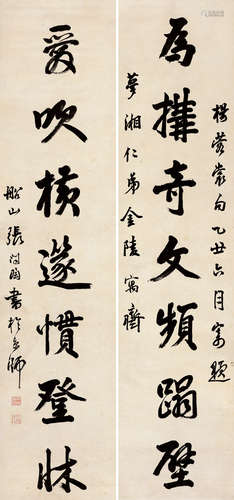 為奇文頻蹋壁
楊蓉裳句乙丑六月寄題
夢湘仁弟金陵寓齋
愛吹橫篴慣登牀
船山張問陶書於京師